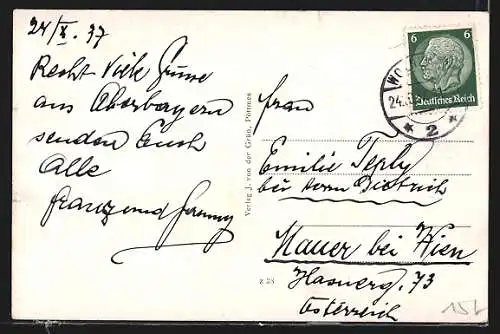 24/X. 37
Recht Viele Grüsse
aus Oberbayern
senden Euch
Alle
Franz und
Verlag J. von der Grün, Pöttmes
Z 28
6 6
Deutsches Reich
WO
24.
* 2 *
Frau
Emilie Teply
bei Dietrich
Mauer bei Wien
73
Österreich
15L